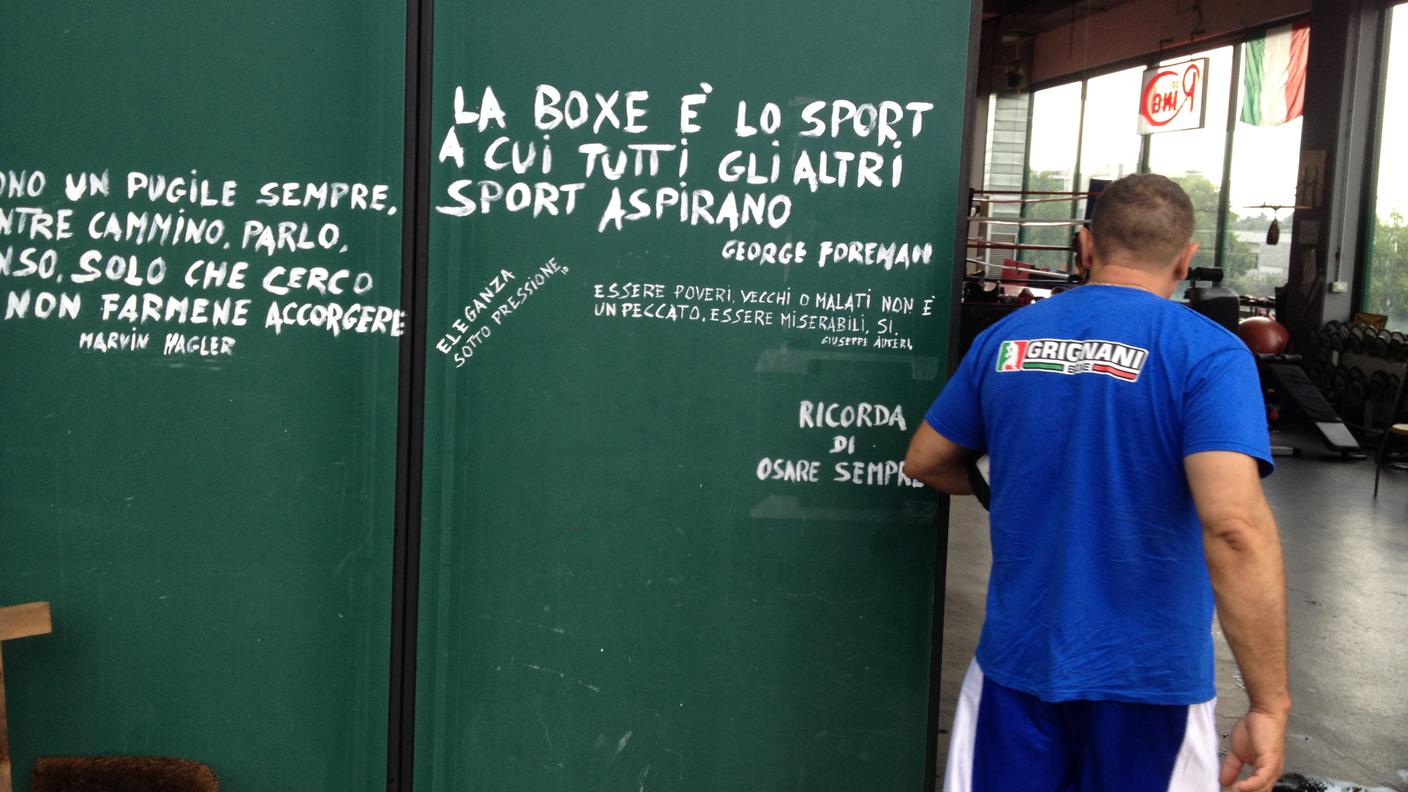 ONO UN PUGILE SEMPRE,
NTRE CAMMINO, PARLO,
NSO, SOLO CHE CERCO
NON FARMENE ACCORGERE
MARVIN HAGLER
LA BOXE E' LO SPORT
A CUI TUTTI GLI ALTRI
SPORT ASPIRANO
GEORGE FOREMAN
ELEGANZA
SOTTO PRESSIONE.
ESSERE POVERI, VECCHI O MALATI NON E'
UN PECCATO, ESSERE MISERABILI, SI.
GIUSEPPE AUTERI,
RICORDA
DI
OSARE SEMPRE
GRIGNANI
BOXE
RING